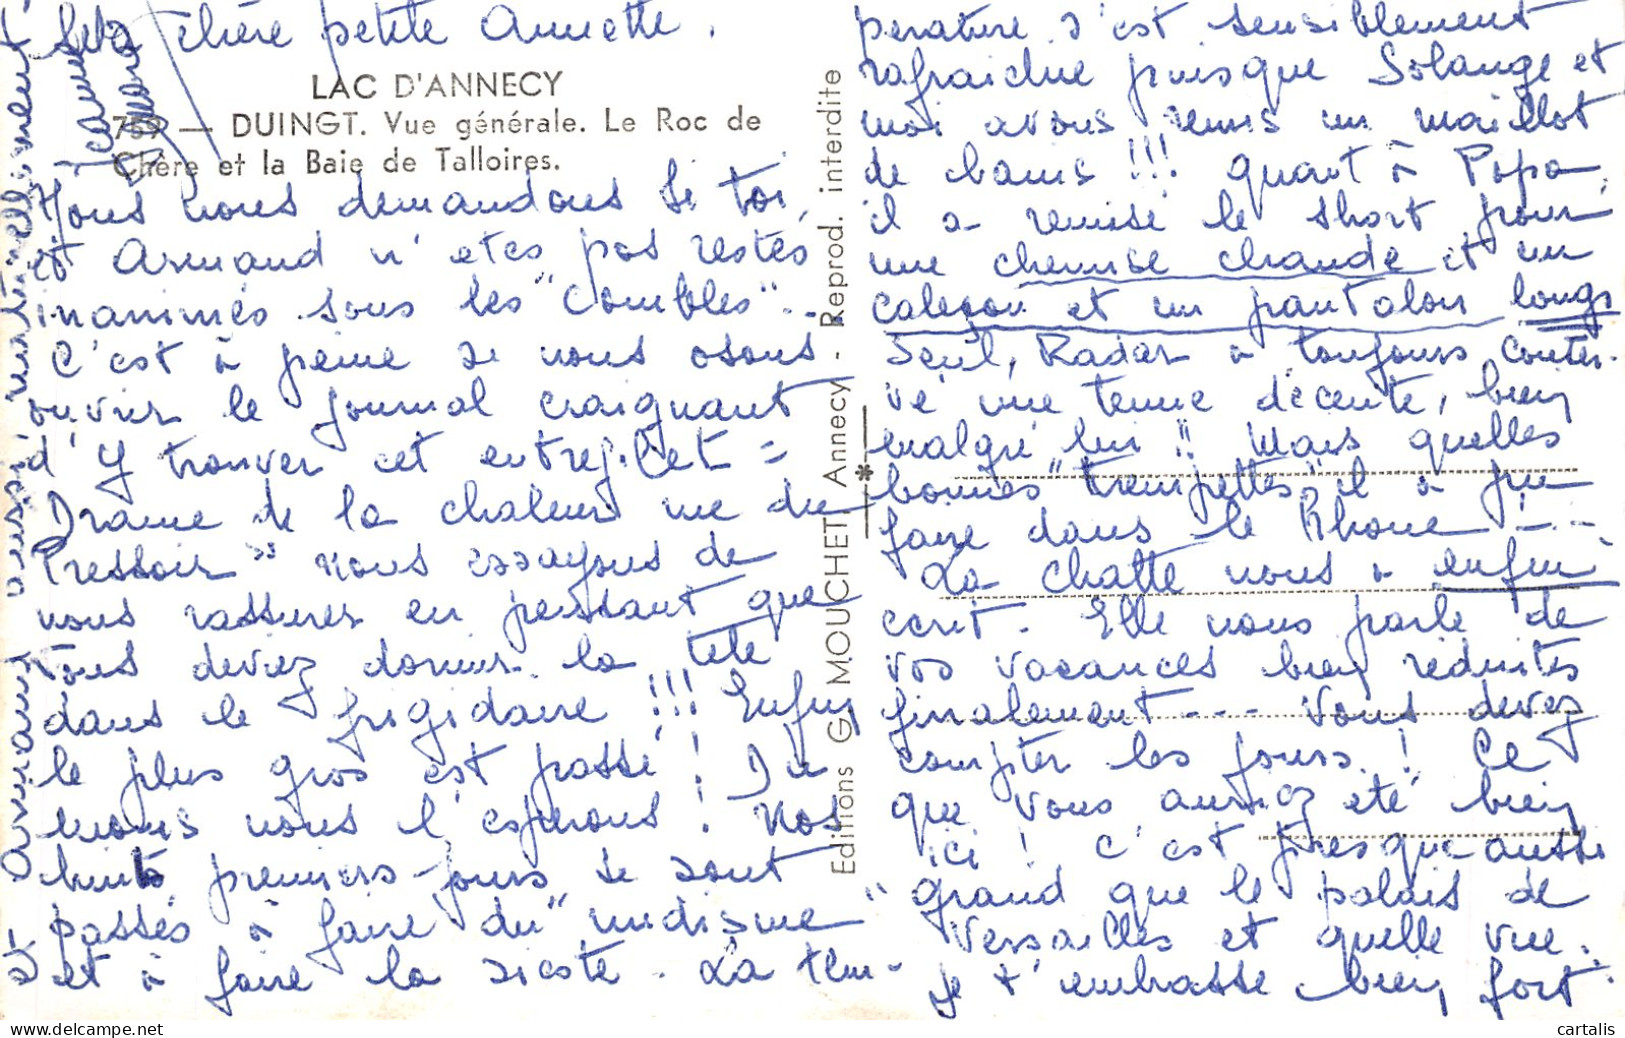 chère petite Annette.
LAC D'ANNECY
759 — DUINGT. Vue générale. Le Roc de
Chère et la Baie de Talloires.
Nous nous demandons si toi,
et Armand n'êtes pas restés
inanimés sous les "Combles"...
C'est à peine si nous osons
ouvrir le journal craignant
d'y trouver cet entrefilet =
Drame de la chaleur rue du
Pressoir" nous essayons de
nous rassurer en pensant que
vous devez dormir la tête
dans le frigidaire !!! Enfin
le plus gros est passé ! Du
moins nous l'espérons ! Nos
huit premiers jours se sont
passés à faire du "nudisme"
et à faire la sieste. La tem-
pérature s'est sensiblement
rafraichie puisque Solange et
moi avons remis un maillot
de bains !!! quant à Papa,
il a remisé le short pour
une chemise chaude et un
caleçon et un pantalon longs
Seul, Radar a toujours conser-
vé une tenue décente, bien
malgré lui !! Mais quelles
bonnes "trempettes" il a pu
faire dans le Rhône !...
La chatte nous a enfin
écrit. Elle nous parle de
vos vacances bien réduites
finalement --- Vous devez
compter les jours ! Ce
que vous auriez été bien
ici ! C'est presque aussi
grand que le palais de
Versailles et quelle vue.
Je t'embrasse bien fort.
et Armand aussi, naturellement
Editions G. MOUCHET Annecy - Reprod. interdite
cartalis